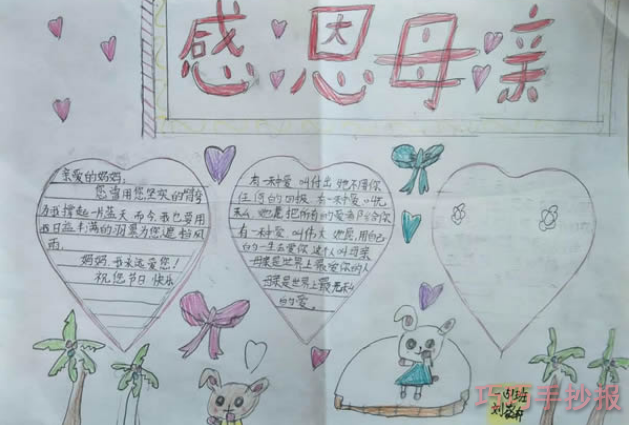 感恩母亲
亲爱的妈妈:
您曾用您坚实的臂膀
为我撑起一片蓝天 而今 我也要用
我日益丰满的羽翼为您遮挡风
雨。
妈妈 我永远爱您!
祝您节日快乐
有一种爱 叫付出 她不需你
任何的回报 有一种爱 叫无
私 她是把所有的爱都给你
有一种爱 叫伟大 她是用自己
的一生去爱你 这个人叫母亲
母亲是世界上最爱你的人
母亲是世界上最无私
的爱。
班
刘
巧巧手抄报